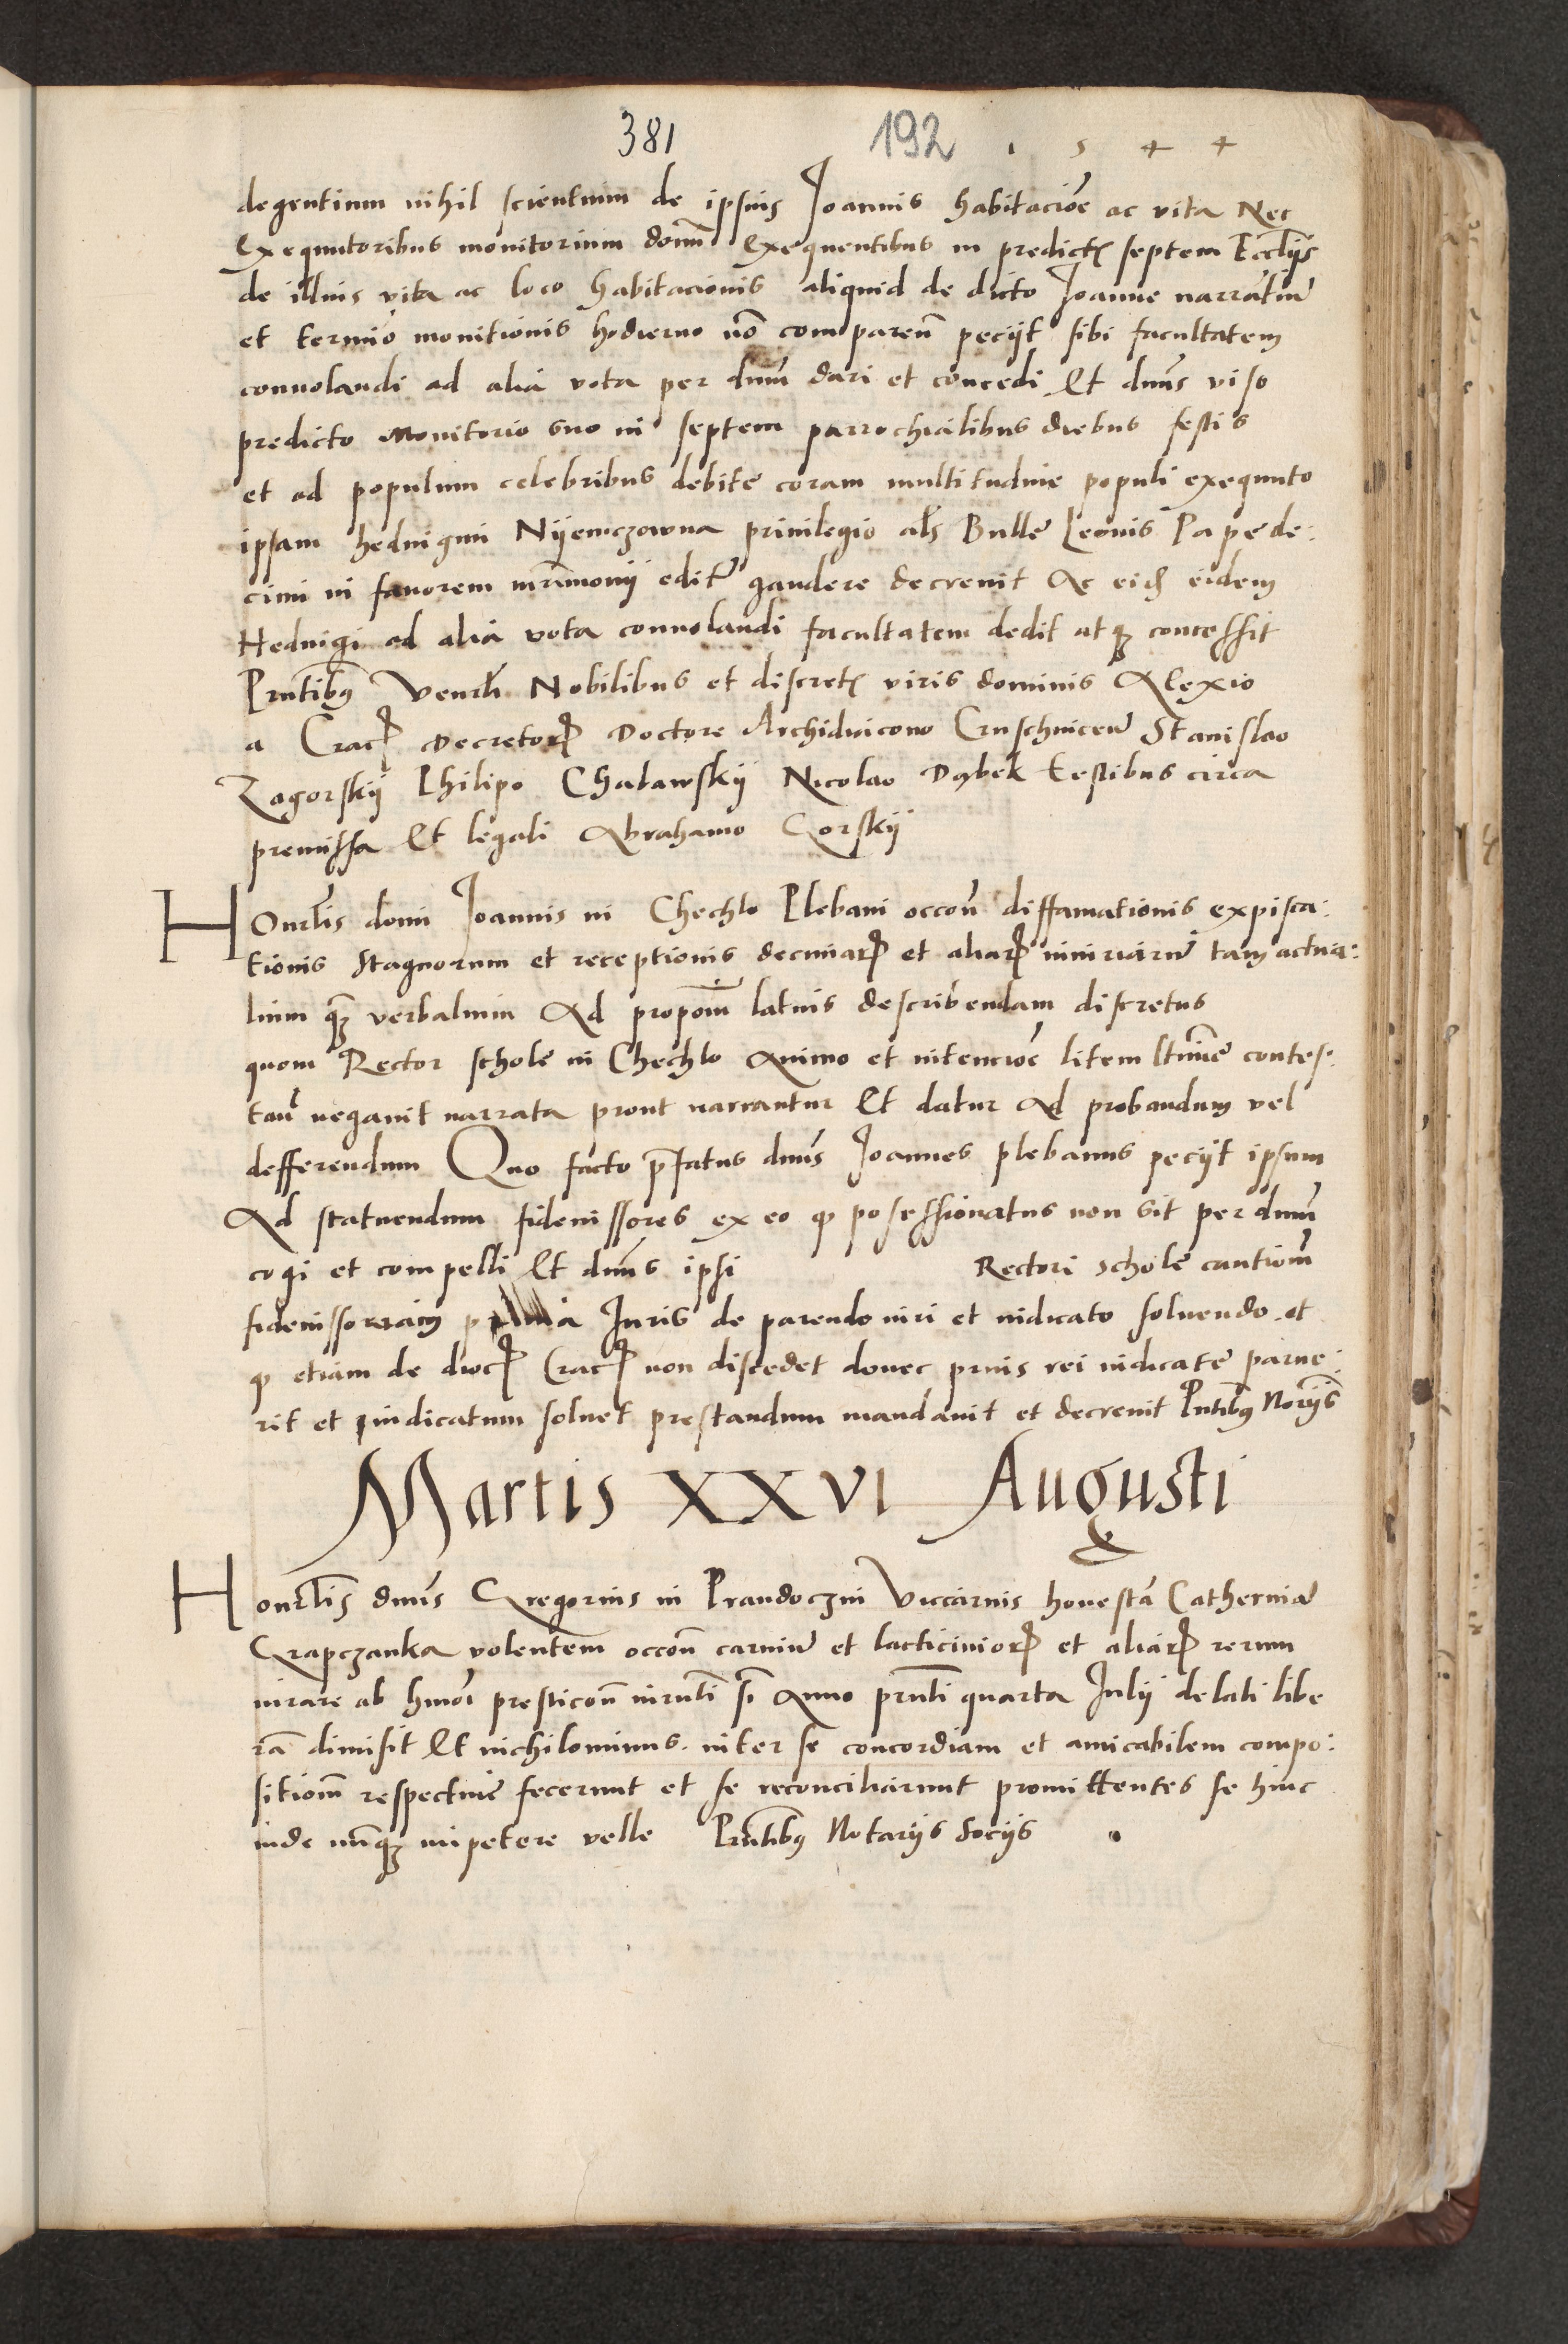 381 192 1 5 4 4
degentium nihil scientium de ipsius Joannis habitacioē ac vita Nec
Exequutoribus monitorium domī Exequentibus in predictis septem Eccliis
de illius vita ac loco habitacionis aliquid de dicto Joanne narratiuē
et termiō monitionis hodierno nō comparen̄ peciit sibi facultatem
conuolandi ad alia vota per dnm̄ dari et concedi Et dnūs viso
predicto Monitorio suo in septem parrochialibus diebus festis
et ad populum celebribus debite coram multitudine populi exequuto
ipsam heduigim Nyemczowna priuilegio als̄ Bulle Leonis Pape de:
cimi in fauorem mr̄imonij editē gaudere decreuit Ac eid eidem
Heduigi ad alia vota conuolandi facultatem dedit atq; concessit
Prn̄tibus Venerli Nobilibus et discretis viris dominis Alexio
a Crac Decretor Doctore Archidiacono Cruschuicen̄ Stanislao
Zagorskij Philipo Chabawskij Nicolao Dybek testibus circa
premissa Et legali Abrahamo Gorskij
HOnrl̄is domi Joannis in Chechlo Plebani occon̄ diffamationis expisca:
tionis stagnorum et receptionis decimar et aliar iniuriarū tam actua:
lium q̄; verbalium Ad proponm̄ latius describendam discretus
quem Rector schole in Chechlo Animo et intencioē litem contes:
tan̄ negauit narrata prout narrantur Et datur Ad probandum vel
defferendum Quo facto p̄fatus dnūs Joannes plebanus peciit ipsum
Ad statuendum fideiussores ex eo q posessionatus non sit per dnm̄
cogi et compelli Et dnūs ipsi Rectori schole cautionm̄
fideiussoream Juris de parendo iuri et iudicato soluendo et
q etiam de dioc Crac non discedet donec prius rei iudicate parue:
rit et iudicatum soluet prestandum mandauit et decreuit Pntibus Norijs
Martis XXVI Augusti
Honrl̄is dnūs Gregorius in Prandoczin Viccarius honestā Catherinā
Grapczanka volentem occon̄ carniū et lacticinior et aliar rerum
iurare ab hmōi presticon̄ iurn̄ti s̄ Anno prn̄ti quarta Julij delati libe
rā dimisit Et nichilominus inter se concordiam et amicabilem compo:
sitionm̄ respectiue fecerunt et se reconciliarunt promittentes se hinc
inde nunq; impetere velle Prn̄tibus Notarijs Socijs